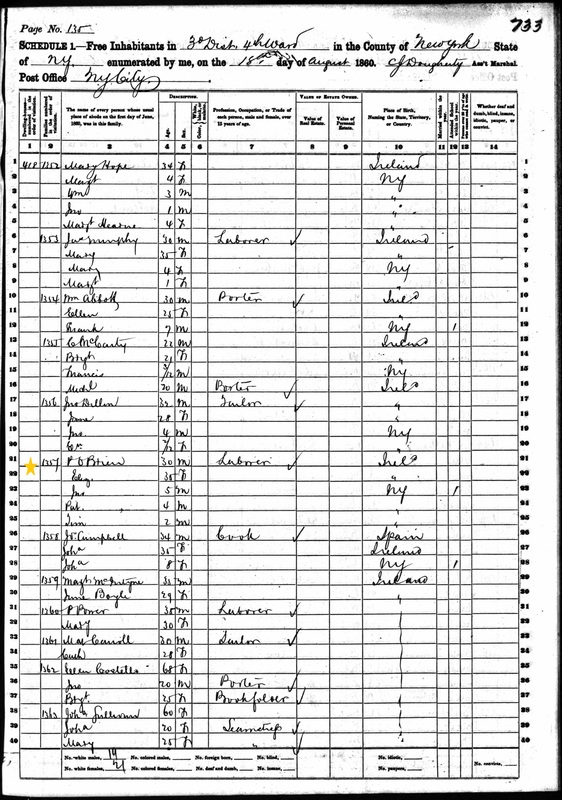 Page No. 135
733
SCHEDULE 1.—Free Inhabitants in 3d Dist 4th Ward in the County of New York State
of NY enumerated by me, on the 18th day of August 1860. CJ Dougherty Ass't Marshal.
Post Office NY City
Dwelling-houses numbered in the order of visitation.
Families numbered in the order of visitation.
The name of every person whose usual place of abode on the first day of June, 1860, was in this family.
DESCRIPTION.
Age.
Sex.
Color,
Profession, Occupation, or Trade of each person, male and female, over 15 years of age.
VALUE OF ESTATE OWNED.
Value of Real Estate.
Value of Personal Estate.
Place of Birth, Naming the State, Territory, or Country.
Married within the year.
Attended School within the year.
Whether deaf and dumb, blind, insane, idiotic, pauper, or convict.
1 2 3 4 5 6 7 8 9 10 11 12 13 14
1 418 1352 Mary Hope 34 F Ireland 1
2 Margt 4 F NY 2
3 Wm 3 M " 3
4 Jno 1 M " 4
5 Margt Hearne 4 F " 5
6 1353 Jas Murphy 30 M Laborer Ireland 6
7 Mary 35 F " 7
8 Mary 4 F NY 8
9 Margt 1 F " 9
10 1354 Wm Abbott 30 M Porter Ireld 10
11 Ellen 25 F " 11
12 Frank 7 M NY 1 12
13 1355 C McCarty 22 M Ireland 13
14 Bryt 21 F " 14
15 Francis 3/12 M NY 15
16 Michl 70 M Porter Ireld 16
17 1356 Jno Dillon 32 M Tailor " 17
18 Jane 28 F " 18
19 Jno. 4 M NY 19
20 /12 F " 20
21 1357 P O'Brien 30 M Laborer Ireld 21
22 Eliz. 35 F " 22
23 Jno 5 M NY 1 23
24 Pat. 4 M " 24
25 Tim 2 M " 25
26 1358 Campbell 34 M Cook Spain 26
27 Joha 35 F Ireland 27
28 Joha 8 F NY 1 28
29 1359 Margt McIntyre 35 Ireland 29
30 Boyle 29 F " 30
31 1360 P Power 30 M Laborer 31
32 Mary 30 F 32
33 1361 Carroll 30 M Tailor 33
34 Cath 28 F 34
35 1362 Ellen Costello 68 F 35
36 Jno 20 M Porter 36
37 Bryt 25 F Bookfolder 37
38 1363 Joha Sullivan 60 F 38
39 Joha 20 F Seamstress 39
40 Mary 25 F " 40
No. white males, 19 No. colored males, No. foreign born, No. blind, No. idiotic, No. convicts,
No. white females, 21 No. colored females, No. deaf and dumb, No. insane, No. paupers,